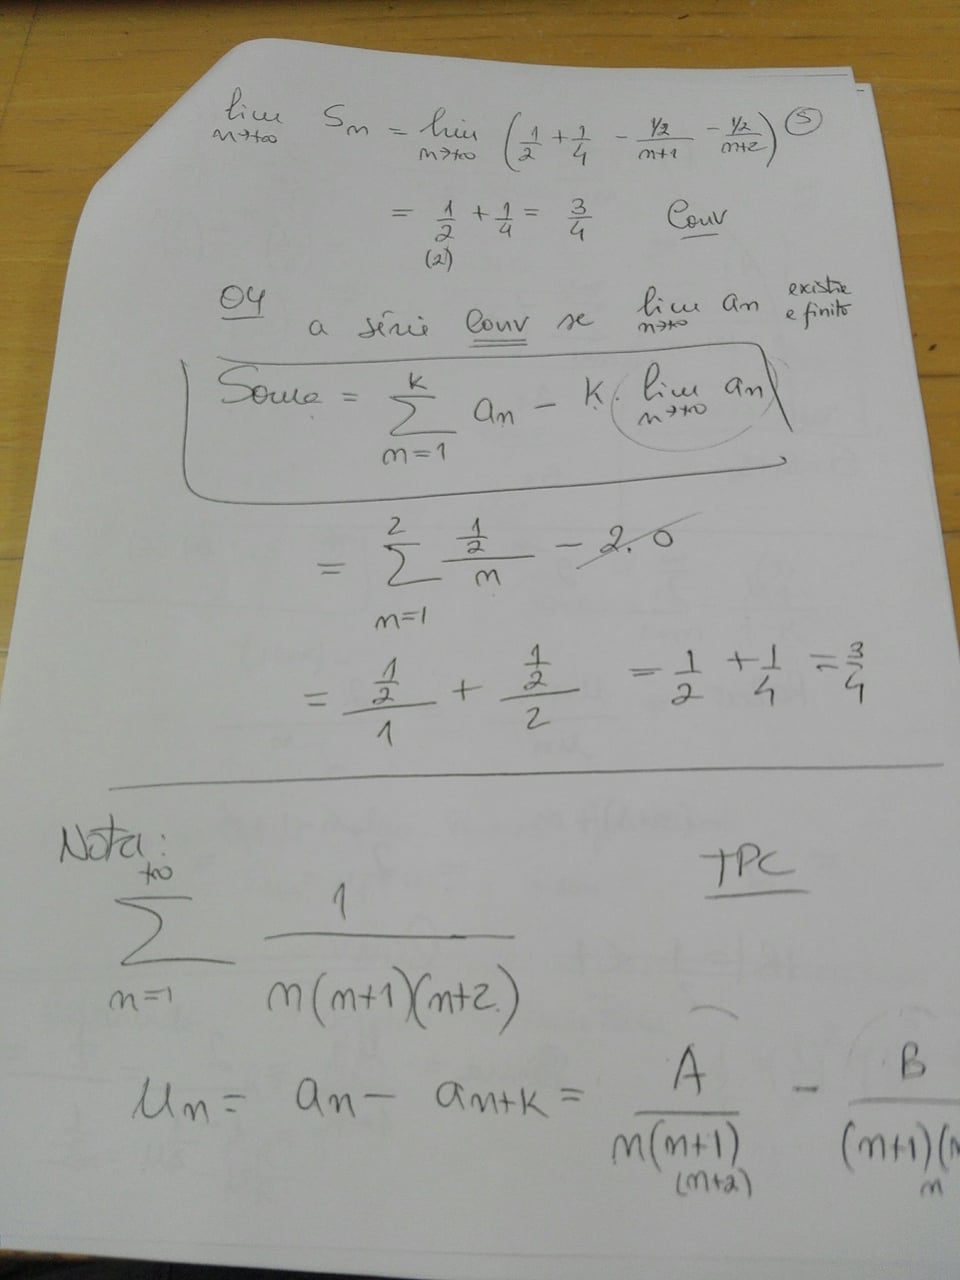 lim n→+∞ Sn = lim n→+∞ (1/2 + 1/4 - 1/2/n+1 - 1/2/n+2) (5)
= 1/2 + 1/4 = 3/4 Conv
(2)
OU a série Conv se lim n→+∞ an existe e finito
Soma = ∑ n=1 k an - k. lim n→+∞ an
= ∑ n=1 2 1/2/n - 2.0
= 1/2/1 + 1/2/2 = 1/2 + 1/4 = 3/4
Nota: TPC
∑ n=1 +∞ 1/n(n+1)(n+2)
un = an - an+k = A/n(n+1) - B/(n+1)(n
(n+2) n